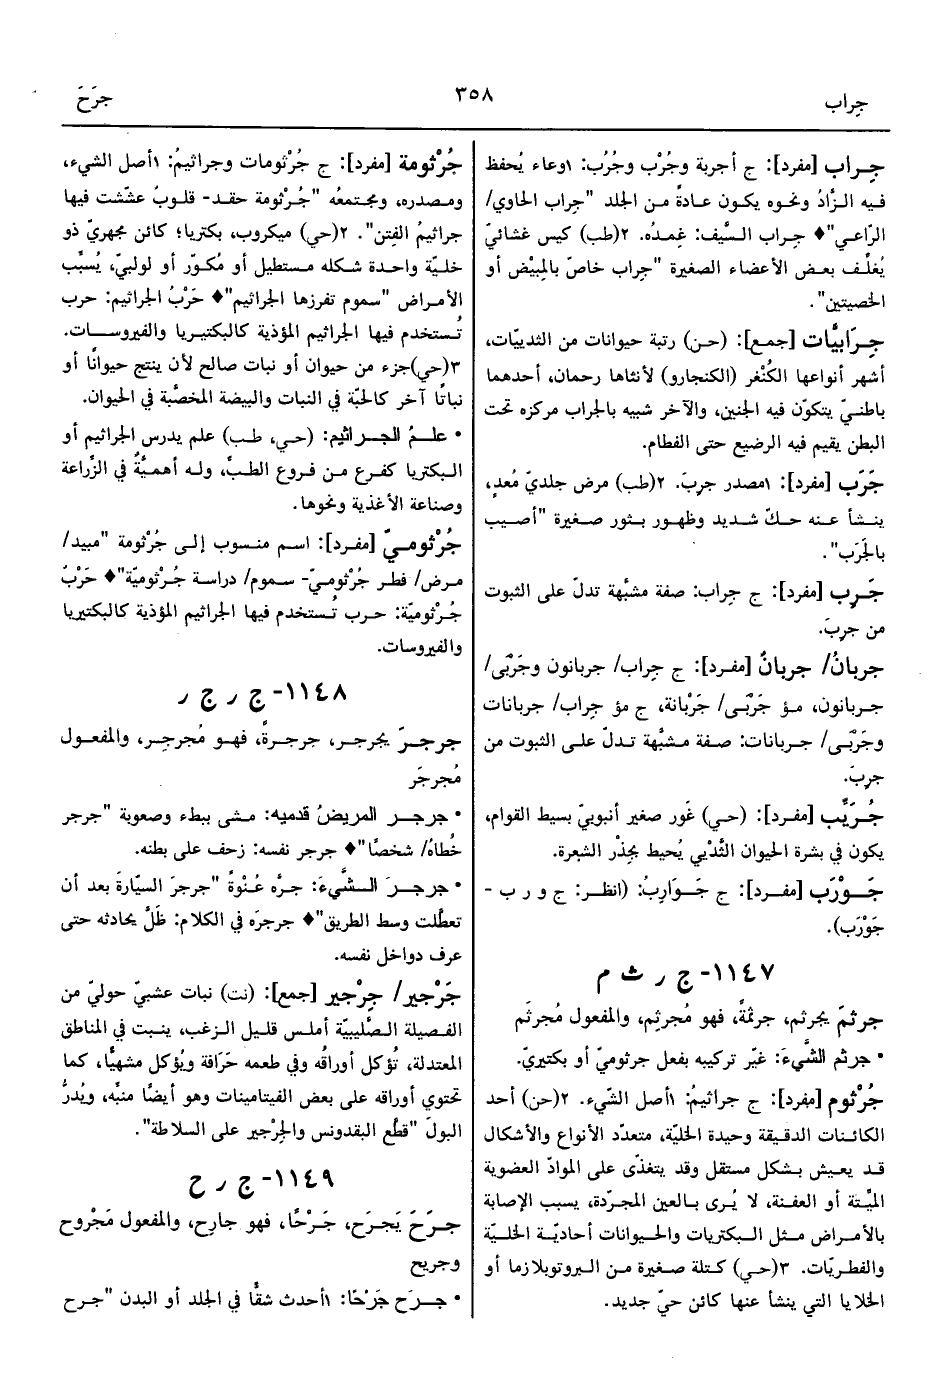 جِراب
٣٥٨
جرَحَ
جِـراب [مفرد]: ج أجربة وجُرْب وجُرُب: ١وعاء يُحفظ
فيه الـزَّادُ ونحوه يكون عـادةً مـن الجلد "جراب الحاوي/
الرّاعي"♦ جراب السَّيف: غِمدُه. ٢(طب) كيس غشائيّ
يُغلِّف بعض الأعضاء الصغيرة "جِراب خاصّ بالمبيْض أو
الخصيتين".
جِـرَابيَّات [جمع]: (حن) رتبة حيوانات من الثدييّات،
أشهر أنواعها الكُنْغر (الكنجارو) لأنثاها رحمان، أحدهما
باطنيّ يتكوّن فيه الجنين، والآخر شبيه بالجراب مركزه تحت
البطن يقيم فيه الرضيع حتى الفطام.
جَرَب [مفرد]: ١مصدر جرِبَ. ٢(طب) مرض جلديّ مُعدٍ،
ينشأ عنه حكّ شديد وظهور بثور صغيرة "أصيب
بالجَرَب".
جَـرِب [مفرد]: ج جِراب: صفة مشبَّهة تدلّ على الثبوت
من جرِبَ.
جربانُ/ جربانٌ [مفرد]: ج جِراب/ جربانون وجَرْبَى/
جـربانون، مـؤ جَرْبَـى/ جَرْبانة، ج مؤ جِراب/ جربانات
وجَرْبَى/ جربانات: صفة مشبَّهة تدلّ على الثبوت من
جرِبَ.
جُـرَيِّب [مفرد]: (حي) غَور صغير أنبوبيّ بسيط القوام،
يكون في بشرة الحيوان الثَّدْيي يُحيط بجِذْر الشعرة.
جَـوْرَب [مفرد]: ج جَوَارِبُ: (انظر: ج و ر ب -
جَوْرَب).
١١٤٧- ج ر ث م
جرثمَ يجرثم، جرثمةً، فهو مُجرثِم، والمفعول مُجرثَم
• جرثم الشَّيءَ: غيّر تركيبه بفعل جرثوميّ أو بكتيريّ.
جُرْثوم [مفرد]: ج جراثيمُ: ١أصل الشّيء. ٢(حن) أحد
الكائنات الدقيقة وحيدة الخليّة، متعدّد الأنواع والأشكال
قد يعيش بشكل مستقل وقد يتغذّى على الموادّ العضوية
الميِّتة أو العفنة، لا يُرى بالعين المجرّدة، يسبب الإصابة
بالأمراض مثل البكتريات والحيوانات أحاديّة الخليّة
والفطريّات. ٣(حي) كتلة صغيرة من البروتوبلازما أو
الخلايا التي ينشأ عنها كائن حيّ جديد.
جُرْثومة [مفرد]: ج جُرْثومات وجراثيمُ: ١أصل الشيء،
ومصدره، ومجتمعُه "جُرْثومة حقد- قلوبٌ عشّشت فيها
جراثيمُ الفِتن". ٢(حي) ميكروب، بكتريا؛ كائن مجهريّ ذو
خليّة واحدة شكله مستطيل أو مُكوّر أو لولبيّ، يُسبِّب
الأمراض "سموم تفرزها الجراثيم"♦ حَرْبُ الجراثيم: حرب
تُستخدم فيها الجراثيم المؤذية كالبكتيريا والفيروسات.
٣(حي)جزء من حيوان أو نبات صالح لأن ينتج حيوانًا أو
نباتًا آخر كالحبّة في النبات والبيضة المخصَّبة في الحيوان.
• علمُ الجراثيم: (حي، طب) علم يدرس الجراثيم أو
البكتريا كفرع من فروع الطبّ، وله أهميَّةٌ في الزّراعة
وصناعة الأغذية ونحوها.
جُرْثوميّ [مفرد]: اسم منسوب إلى جُرْثومة "مبيد/
مرض/ فطر جُرْثوميّ- سموم/ دراسة جُرْثوميّة"♦ حَرْبٌ
جُرْثوميّة: حرب تُستخدم فيها الجراثيم المؤذية كالبكتيريا
والفيروسات.
١١٤٨- ج ر ج ر
جرجرَ يجرجر، جرجرةً، فهو مُجرجِر، والمفعول
مُجرجَر
• جرجر المريضُ قدميه: مشى ببطء وصعوبة "جرجر
خُطاهُ/ شخصًا"♦ جرجر نفسه: زحف على بطنه.
• جرجرَ الشَّيءَ: جرَّه عُنْوةً "جرجرَ السيّارةَ بعد أن
تعطَّلت وسط الطريق"♦ جرجرَه في الكلام: ظَلَّ يحادثه حتى
عرف دواخل نفسه.
جَرْجير/ جِرْجير [جمع]: (نت) نبات عشبيّ حوليّ من
الفصيلة الصَّليبيّة أملس قليل الزغب، ينبت في المناطق
المعتدلة، تُؤكل أوراقُه وفي طعمه حَرَافة ويُؤكل مشهيًّا، كما
تحتوي أوراقه على بعض الفيتامينات وهو أيضًا منبِّه، ويُدرُّ
البولَ "قطَّع البقدونس والجِرْجير على السلاطة".
١١٤٩- ج ر ح
جرَحَ يَجرَح، جَرْحًا، فهو جارِح، والمفعول مَجْروح
وجريح
• جرَح جَرْحًا: ١أحدث شقًّا في الجلد أو البدن "جرح